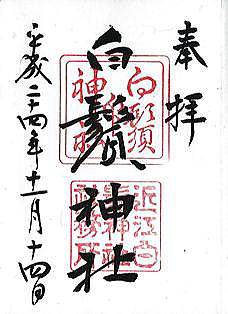 奉拝
白鬚神社
白鬚神社
近江白鬚神社社務所
平成二十四年十一月十四日